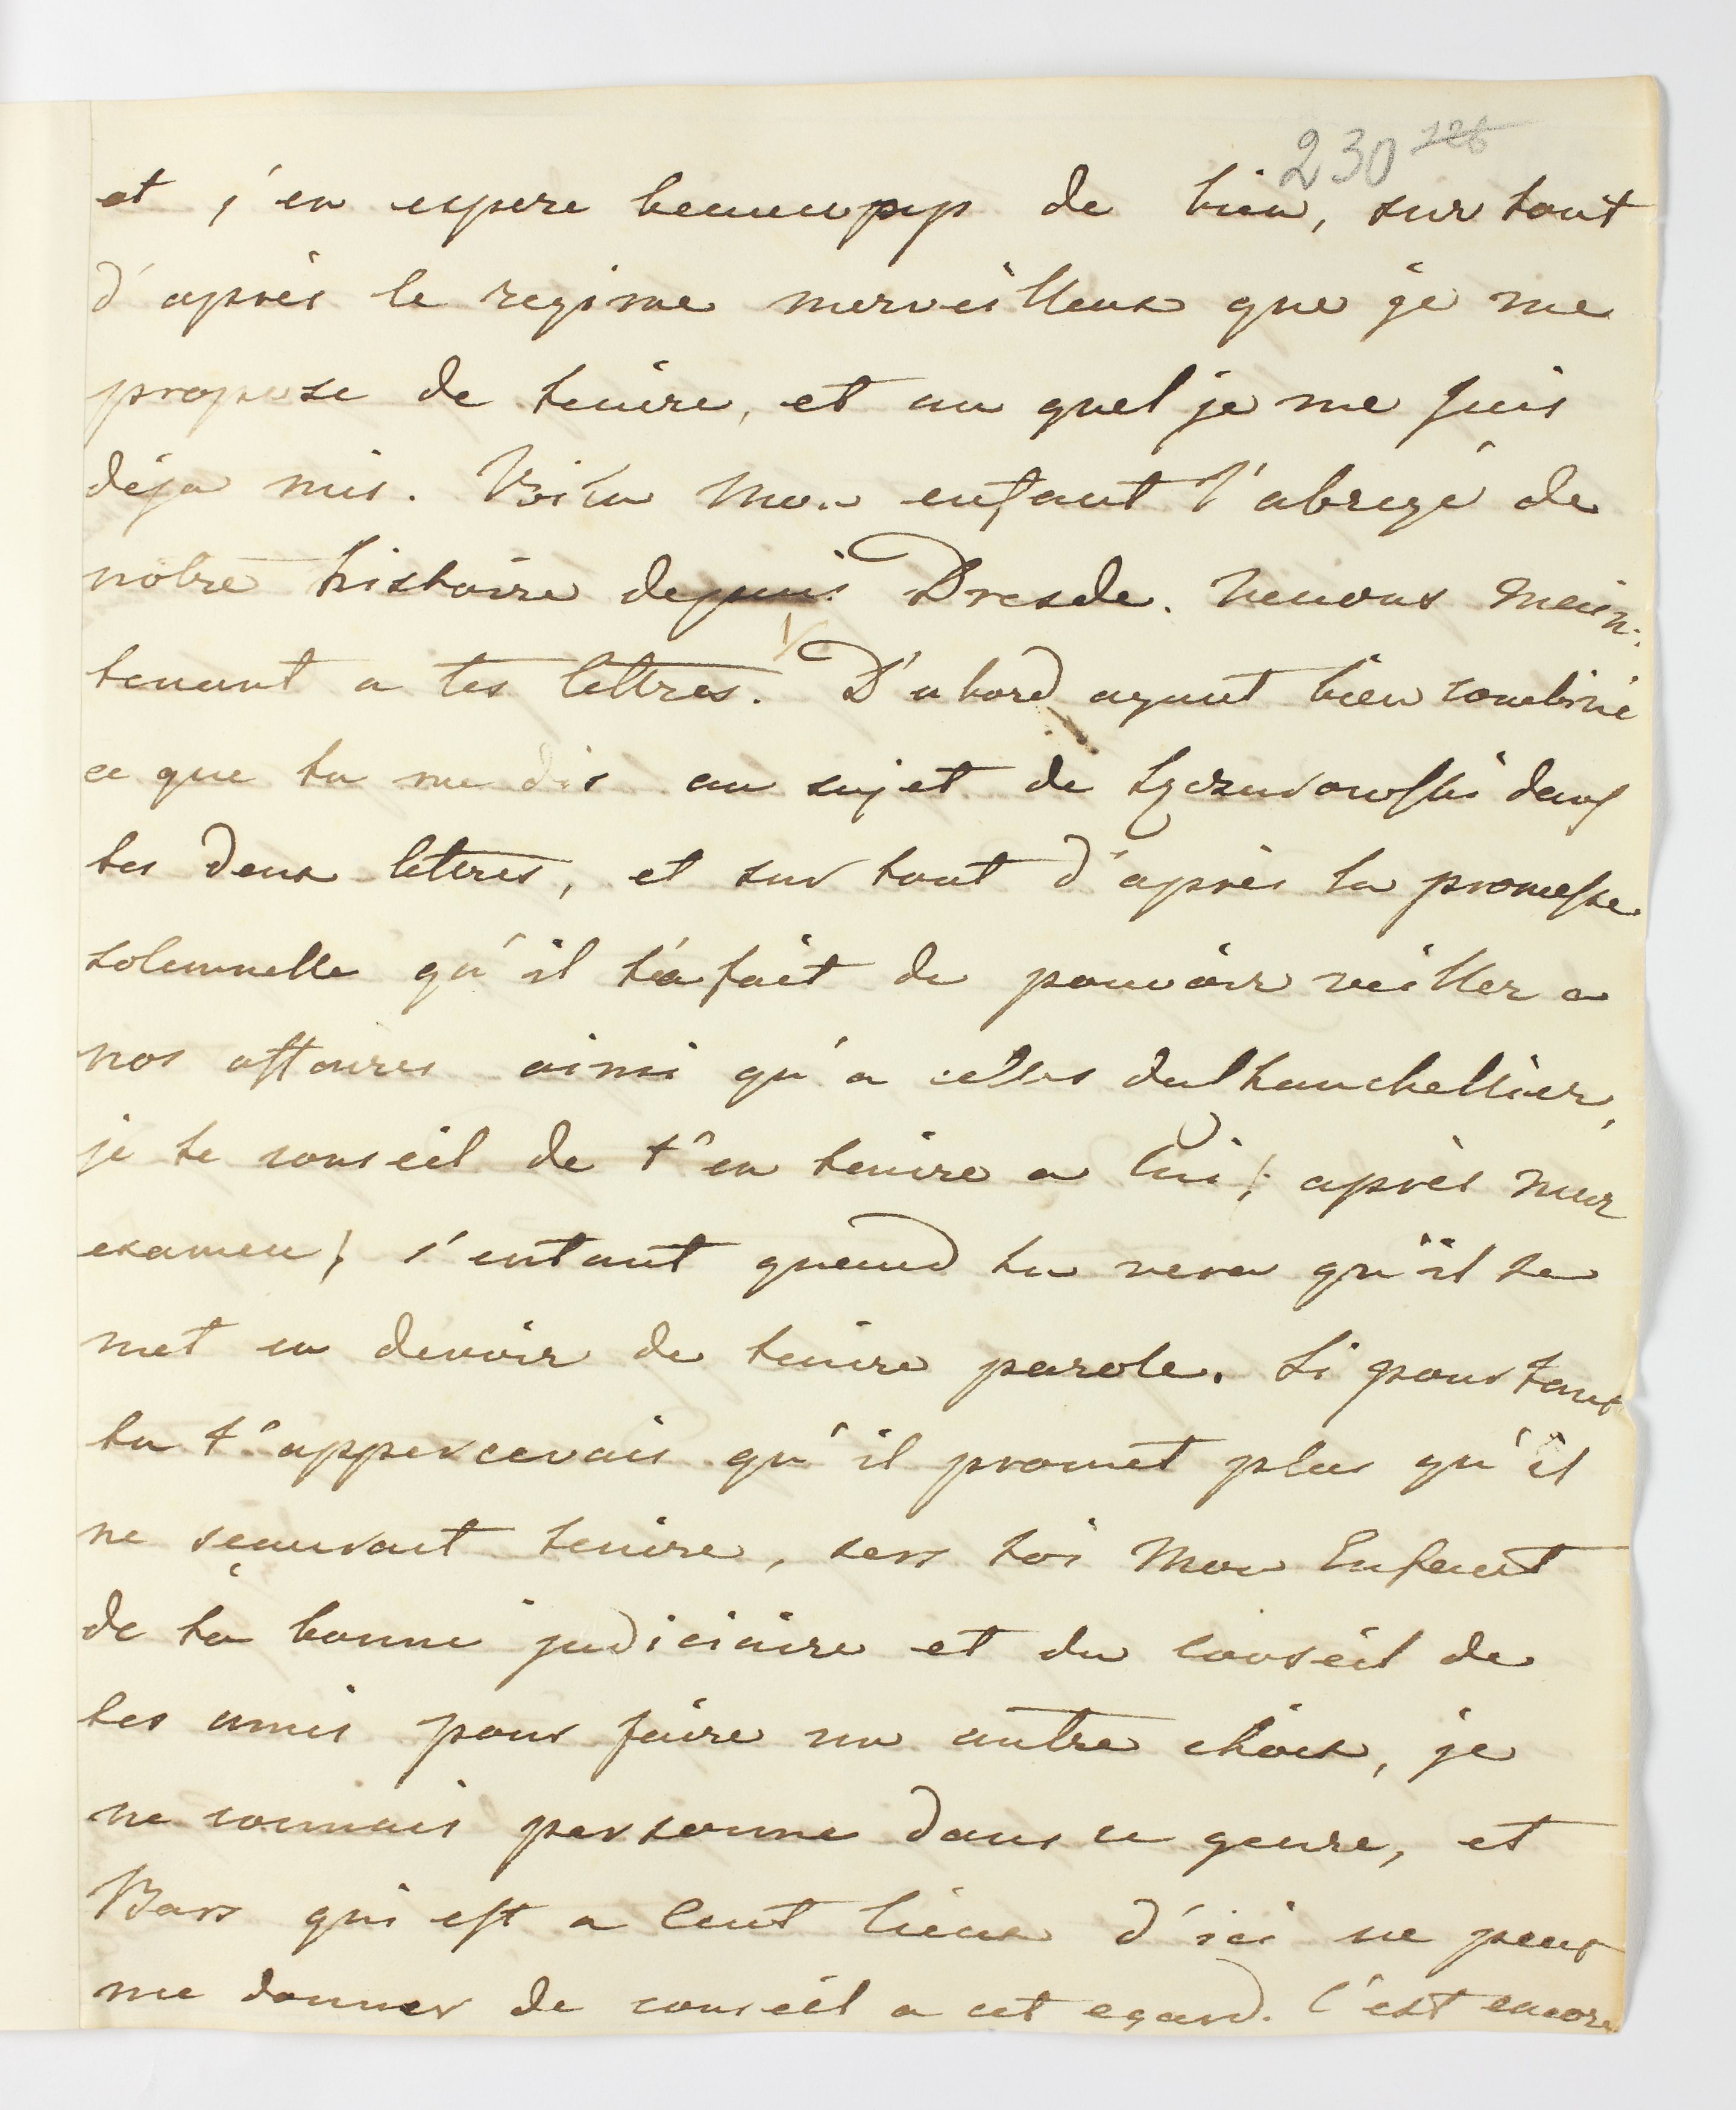 230 126
et j'en espere beaucoup de bien, sur tout
d'après le regime merveilleux que je me
propose de tenire, et au quel je me suis
déja mis. Voila mon enfant l'abregé de
notre histoire depuis Dresde. Venons main:
tenant a tes lettres. D'abord ayant bien combiné
ce que tu me dis au sujet de dans
tes deux lettres, et sur tout d'après la promesse
solemnelle qu'il t'a fait de pouvoir veiller a
nos affaires ainsi qu'a celles
je te conseil de t'en tenire a lui /: après mur
examen / s'entant quand tu vera qu'il se
met en devoir de tenire parole. Si pourtant
tu t'appercevais qu'il promet plus qu'il
ne sçaurait tenire, sers toi Mon Enfant
de ta bonne judiciaire et du conseil de
tes amis pour faire un autre choix, je
ne connais personne dans ce genre, et
Bars qui est a cent lieux d'ici ne peut
me donner de conseil a cet egard. C'est encore